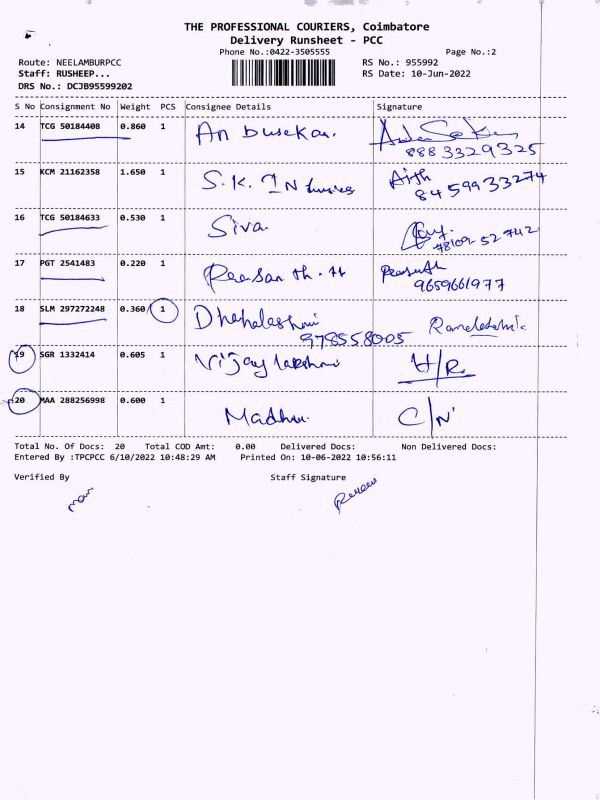 THE PROFESSIONAL COURIERS, Coimbatore
Delivery Runsheet - PCC
Phone No.:0422-3505555
Page No.:2
Route: NEELAMBURPCC
RS No.: 955992
Staff: RUSHEEP...
RS Date: 10-Jun-2022
DRS No.: DCJB95599202
S No Consignment No Weight PCS Consignee Details Signature
14 TCG 50184408 0.860 1 An busekar.
888 3329325
15 KCM 21162358 1.650 1 S.K. Ajith
84 599 33274
16 TCG 50184633 0.530 1 Siva
78109-52742
17 PGT 2541483 0.220 1 Prasanth
9659661977
18 SLM 297272248 0.360 1
978558005
19 SGR 1332414 0.605 1 Vijay lakshmi H/R
20 MAA 288256998 0.600 1 Madhu. C/N
Total No. Of Docs: 20 Total COD Amt: 0.00 Delivered Docs: Non Delivered Docs:
Entered By :TPCPCC 6/10/2022 10:48:29 AM Printed On: 10-06-2022 10:56:11
Verified By Staff Signature